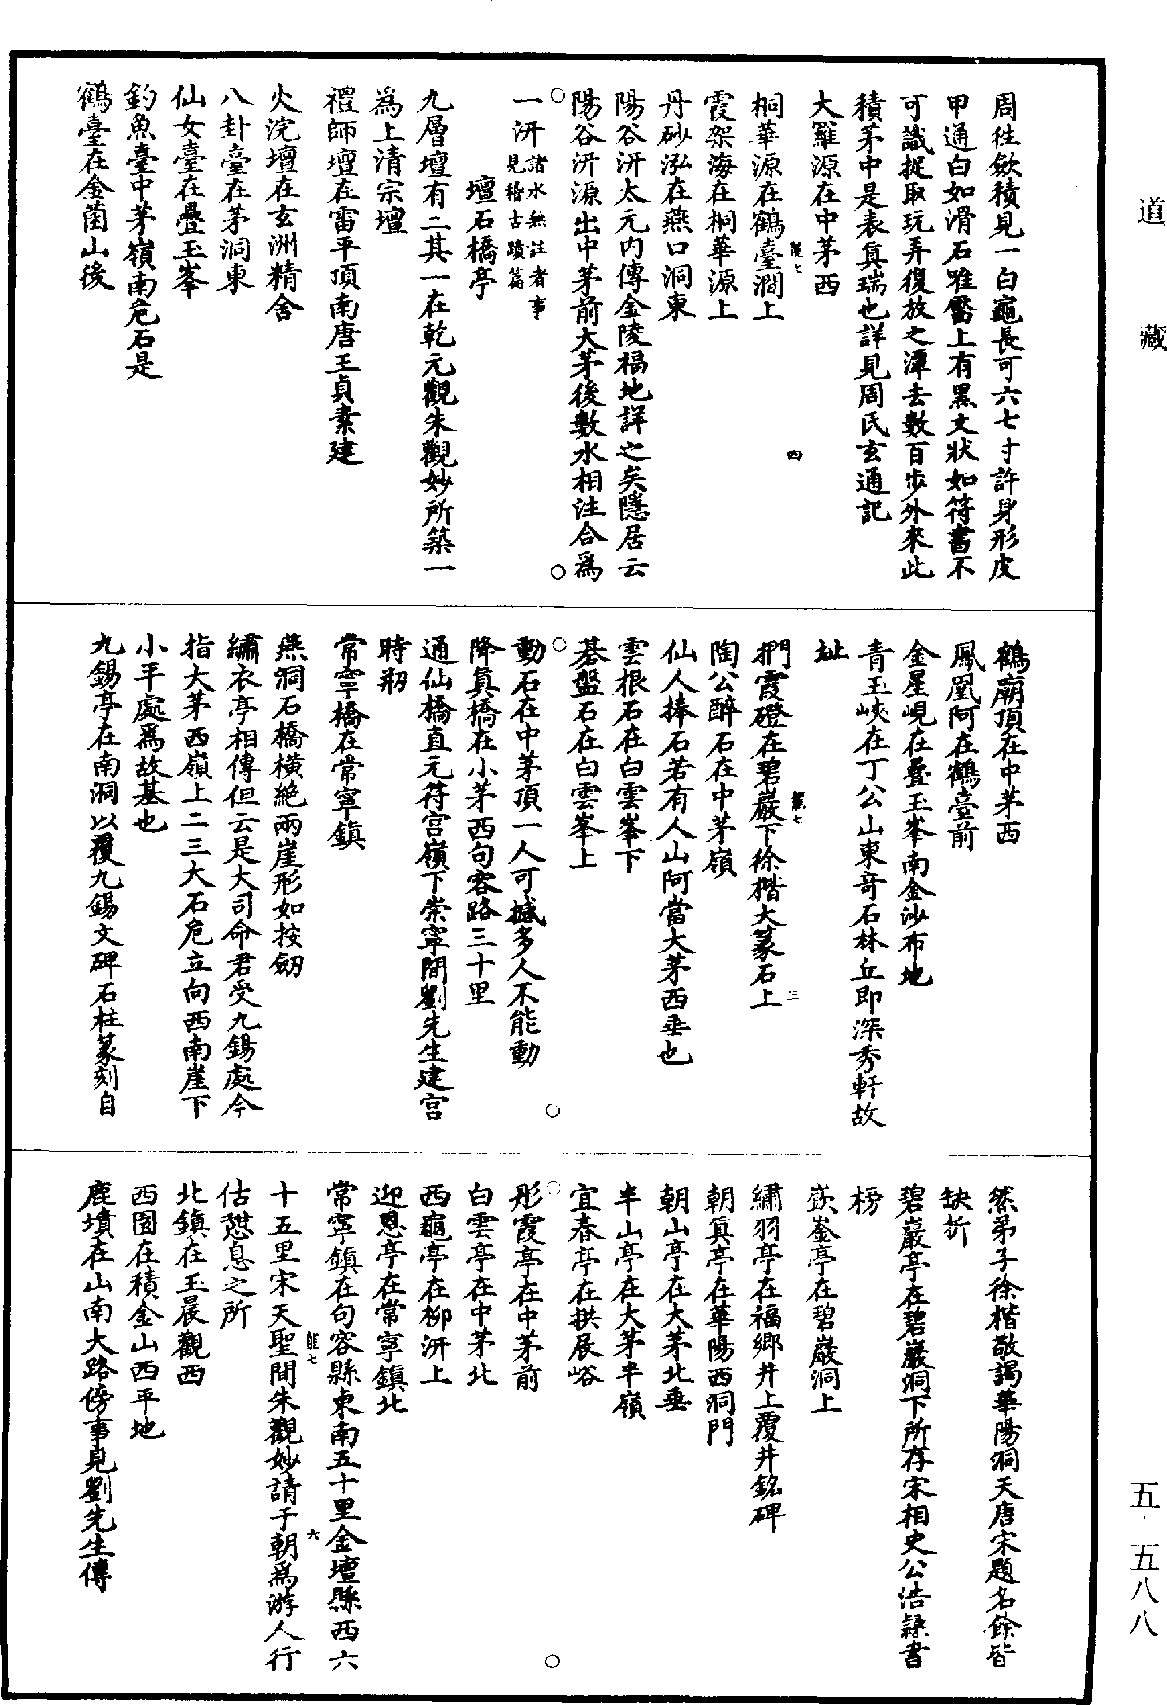 道藏
周往斂積見一白龜長可六七寸許身形皮
甲通白如滑石唯臀上有黑文狀如符書不
可識捉取玩弄復放之潭去數百步外來此
積茅中是表真瑞也詳見周氏玄通記
大羅源在中茅西
桐華源在鶴臺澗上
四
霞架海在桐華源上
丹砂泓在燕口洞東
陽谷汧太元內傳金陵福地詳之矣隱居云
陽谷汧源出中茅前大茅後數水相注合為
一汧諸水無註者事
見稽古蹟篇
壇石橋亭
九層壇有二其一在乾元觀朱觀妙所築一
為上清宗壇
禮師壇在雷平頂南唐王貞素建
火浣壇在玄洲精舍
八卦臺在茅洞東
仙女臺在疊玉峯
釣魚臺中茅嶺南危石是
鶴臺在金菌山後
鶴廟頂在中茅西
鳳凰阿在鶴臺前
金星峴在疊玉峯南金沙布地
青玉峽在丁公山東奇石林丘即深秀軒故
址
捫霞磴在碧巖下徐楷大篆石上
陶公醉石在中茅嶺
仙人捧石若有人山阿當大茅西垂也
雲根石在白雲峯下
碁盤石在白雲峯上
動石在中茅頂一人可撼多人不能動
降真橋在小茅西句容路三十里
通仙橋直元符宮嶺下崇寧間劉先生建宮
時剏
常寧橋在常寧鎮
燕洞石橋橫絶兩崖形如按劒
繡衣亭相傳但云是大司命君受九錫處今
指大茅西嶺上二三大石危立向西南崖下
小平處為故基也
九錫亭在南洞以覆九錫文碑石柱篆刻自
然弟子徐楷敬謁華陽洞天唐宋題名餘皆
缺折
碧巖亭在碧巖洞下所存宋相史公浩隸書
榜
嶔崟亭在碧巖洞上
繡羽亭在福鄉井上覆井銘碑
朝真亭在華陽西洞門
朝山亭在大茅北垂
半山亭在大茅半嶺
宜春亭在拱辰峪
彤霞亭在中茅前
白雲亭在中茅北
西龜亭在柳汧上
迎恩亭在常寧鎮北
常寧鎮在句容縣東南五十里金壇縣西六
六
十五里宋天聖間朱觀妙請于朝為游人行
估憇息之所
北鎮在玉晨觀西
西園在積金山西平地
鹿墳在山南大路傍事見劉先生傳
五·五八八